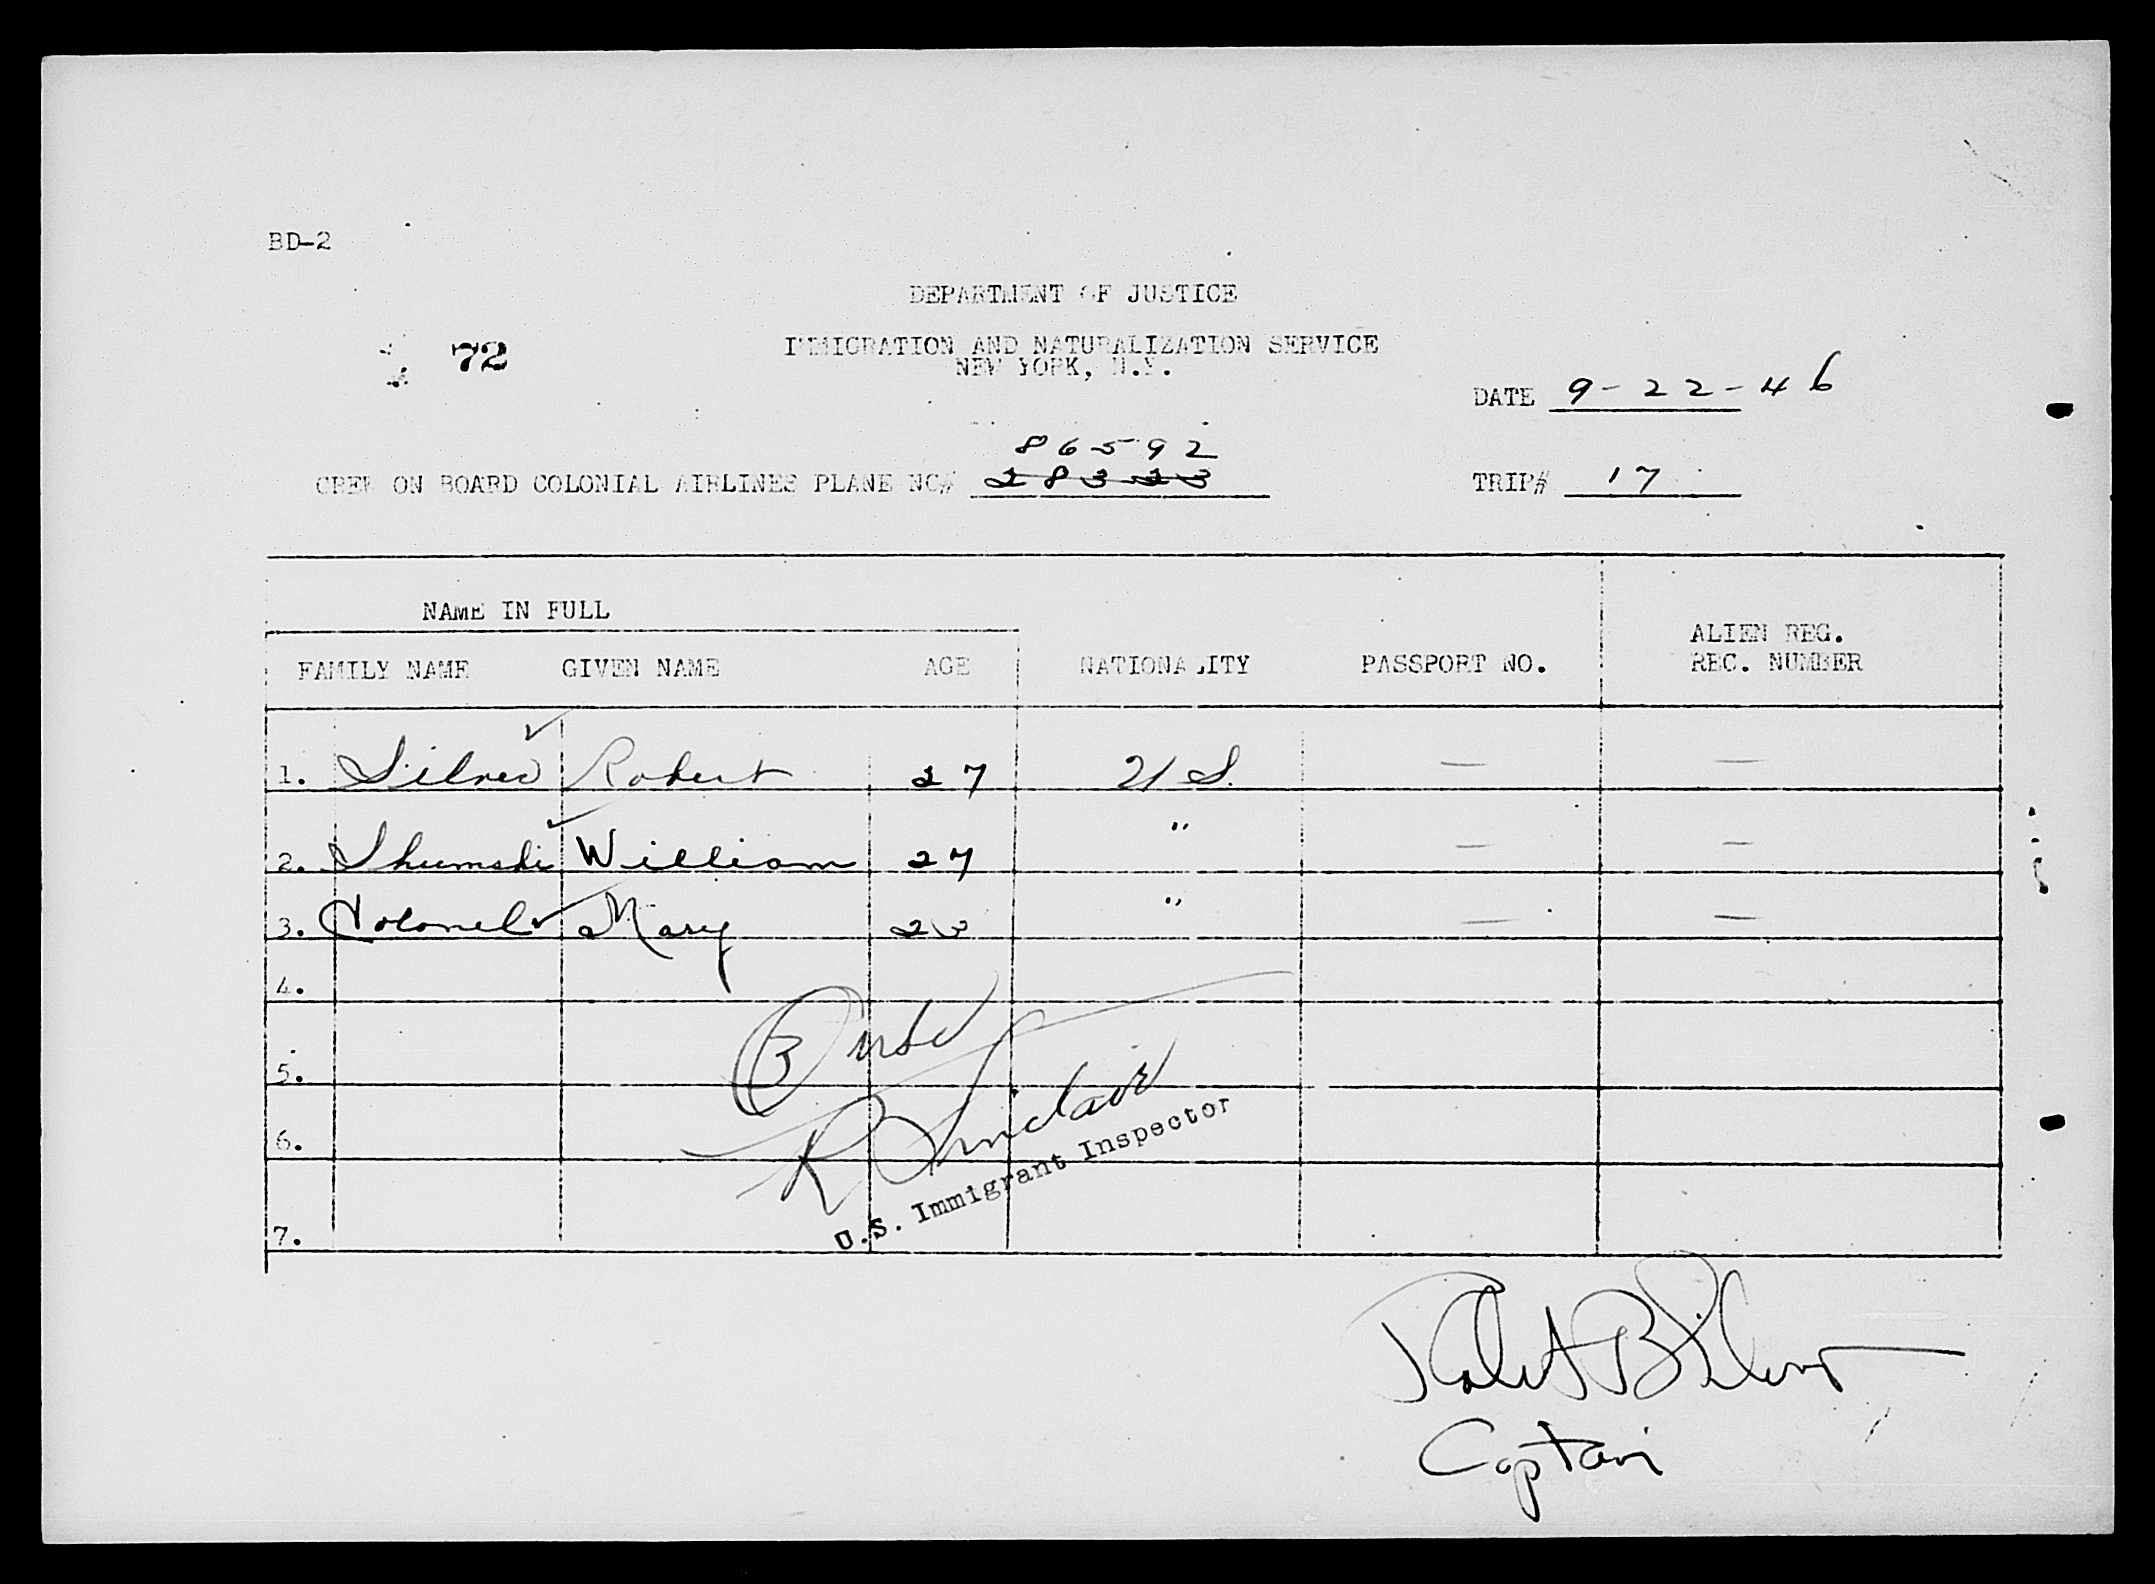 BD-2
DEPARTMENT OF JUSTICE
72
IMMIGRATION AND NATURALIZATION SERVICE
NEW YORK, N.Y.
DATE 9-22-46
86592
CREW ON BOARD COLONIAL AIRLINES PLANE NC# 28323
TRIP# 17
NAME IN FULL
FAMILY NAME GIVEN NAME AGE NATIONALITY PASSPORT NO. ALIEN REG. REC. NUMBER
1. Silver Robert 27 U S. — —
2. Shumski William 27 " — —
3. Colonel Mary 23 " — —
4.
5.
6.
7.
3 usc
R Sinclair
U.S. Immigrant Inspector
Robert B Silver
Captain